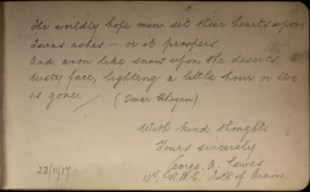 The worldly hope men set their hearts upon
Turns ashes — or it prospers
And anon like snow upon the deserts
dusty face, lighting a little hour or two
is gone. (Omar Khayam)
With kind thoughts
Yours sincerely
A. Lewis
23/11/17 Isle of Grain.